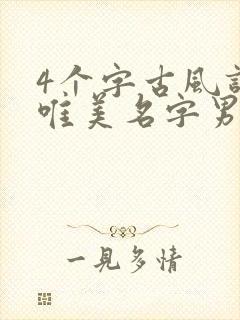 4个字古风
唯美名字男
一見多情